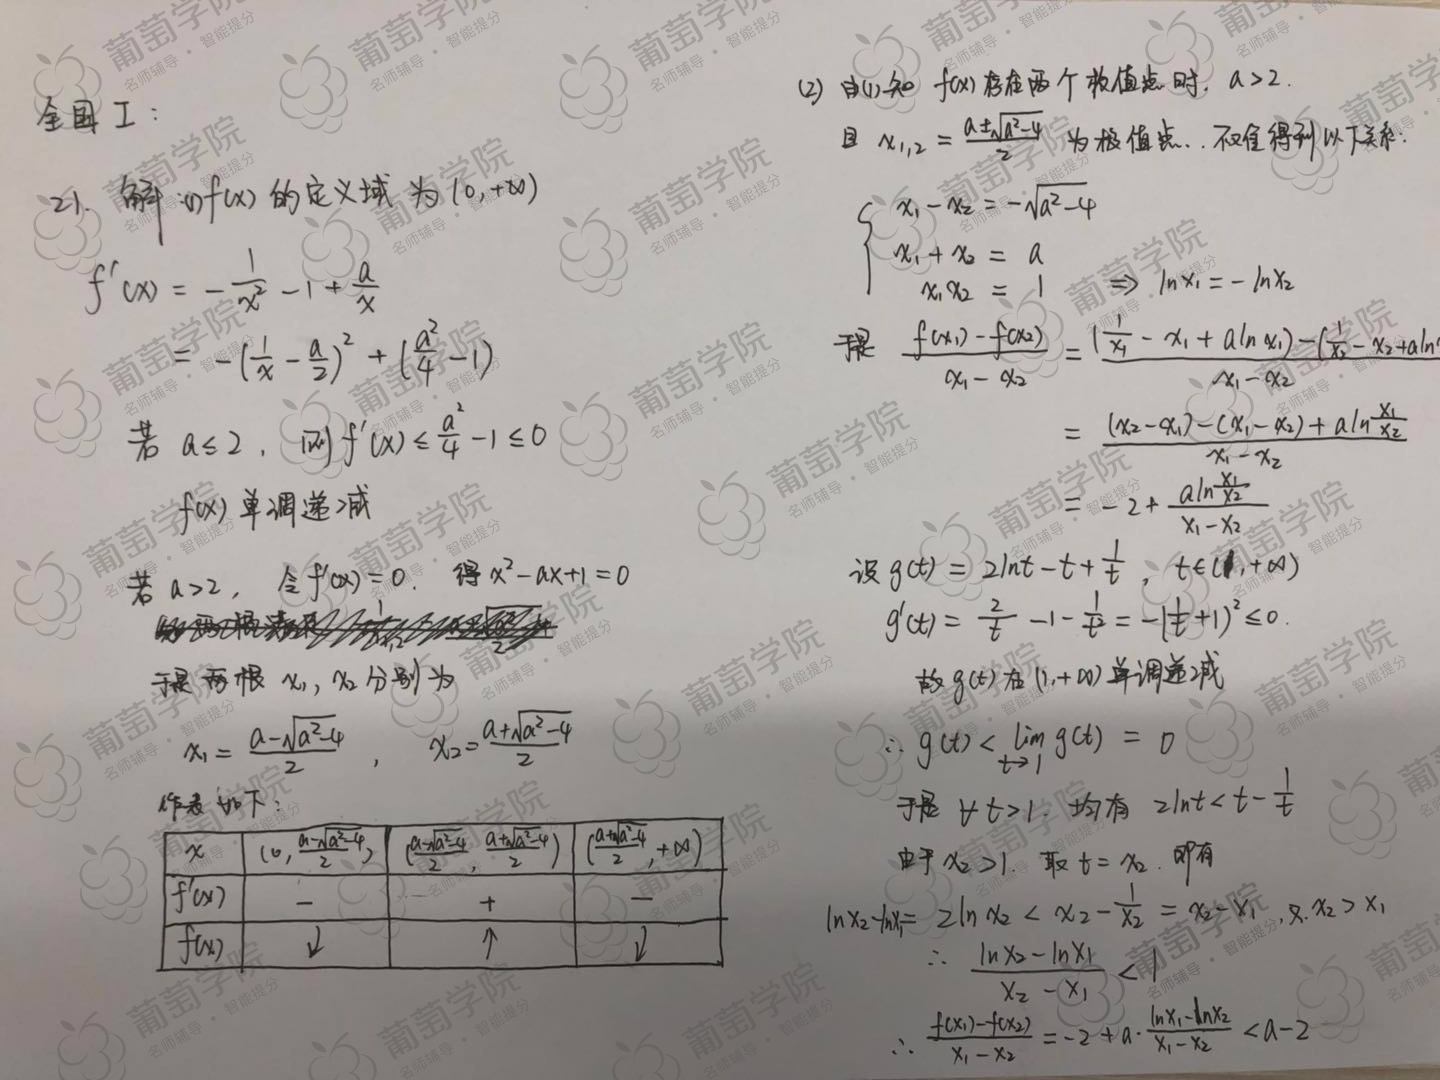 全国 I：
21. 解：(1) f(x) 的定义域为 (0, +∞)
f'(x) = -1/x² - 1 + a/x
= -(1/x - a/2)² + (a²/4 - 1)
若 a ≤ 2，则 f'(x) ≤ a²/4 - 1 ≤ 0
f(x) 单调递减
若 a>2，令 f'(x) = 0. 得 x² - ax + 1 = 0
于是两根 x₁, x₂ 分别为
x₁ = (a-√(a²-4))/2 , x₂ = (a+√(a²-4))/2
作表如下：
x (0, (a-√(a²-4))/2) ((a-√(a²-4))/2, (a+√(a²-4))/2) ((a+√(a²-4))/2, +∞)
f'(x) - + -
f(x) ↓ ↑ ↓
(2) 由(1)知 f(x) 存在两个极值点时. a>2.
且 x₁,₂ = (a±√(a²-4))/2 为极值点.. 不难得到以下关系:
x₁ - x₂ = -√(a²-4)
x₁ + x₂ = a
x₁x₂ = 1 ⇒ lnx₁ = -lnx₂
于是 (f(x₁) - f(x₂))/(x₁ - x₂) = ((1/x₁ - x₁ + alnx₁) - (1/x₂ - x₂ + aln
x₁ - x₂
= ((x₂-x₁) - (x₁-x₂) + aln(x₁/x₂))/(x₁ - x₂)
= -2 + (aln(x₁/x₂))/(x₁ - x₂)
设 g(t) = 2lnt - t + 1/t , t∈(1, +∞)
g'(t) = 2/t - 1 - 1/t² = -(1/t + 1)² ≤ 0.
故 g(t) 在 (1, +∞) 单调递减
∴ g(t) < lim t→1 g(t) = 0
于是 ∀ t>1. 均有 2lnt < t - 1/t
由于 x₂>1. 取 t = x₂. 即有
lnx₂ - lnx₁ = 2lnx₂ < x₂ - 1/x₂ = x₂ - x₁ , 又 x₂ > x₁
∴ (lnx₂ - lnx₁)/(x₂ - x₁) < 1
∴ (f(x₁) - f(x₂))/(x₁ - x₂) = -2 + a · (lnx₁ - lnx₂)/(x₁ - x₂) < a - 2
葡萄学院
名师辅导·智能提分